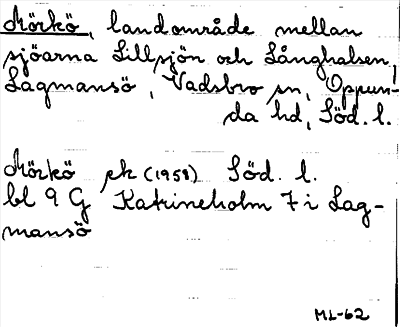 Mörkö, landområde mellan
sjöarna Lillsjön och Långhalsen,
Lagmansö, Vadsbro sn, Oppun-
da hd, Söd. l.
Mörkö ek (1958) Söd. l.
bl 9 G Katrineholm 7 i Lag-
mansö
ML-62